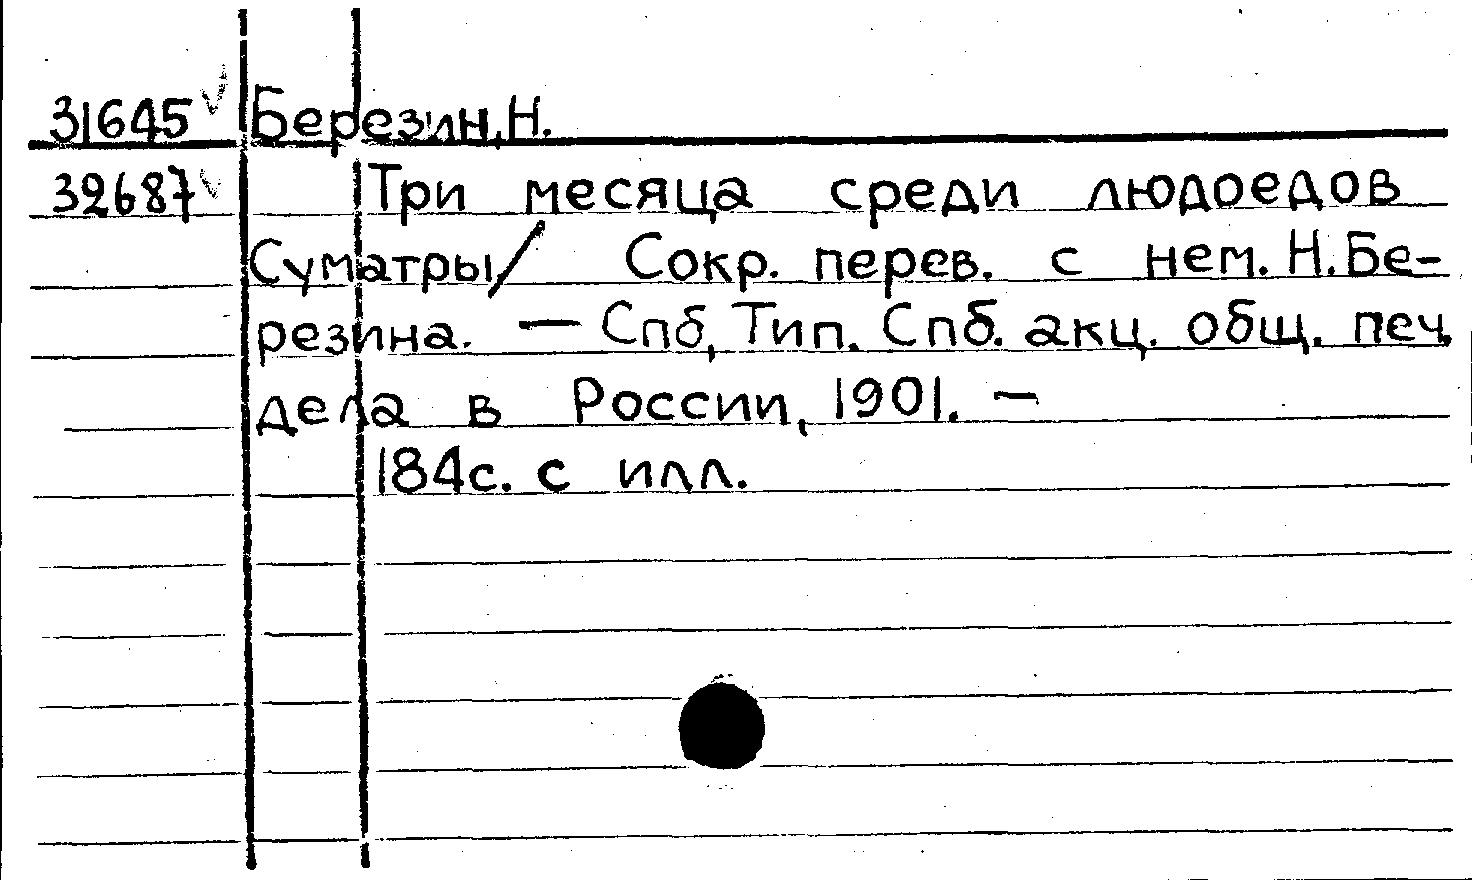 31645 ✓ Березин, Н.
32687 ✓ Три месяца среди людоедов
Суматры/ Сокр. перев. с нем. Н. Бе-
резина. — Спб, Тип. Спб. акц. общ. печ.
дела в России, 1901. —
184с. с илл.